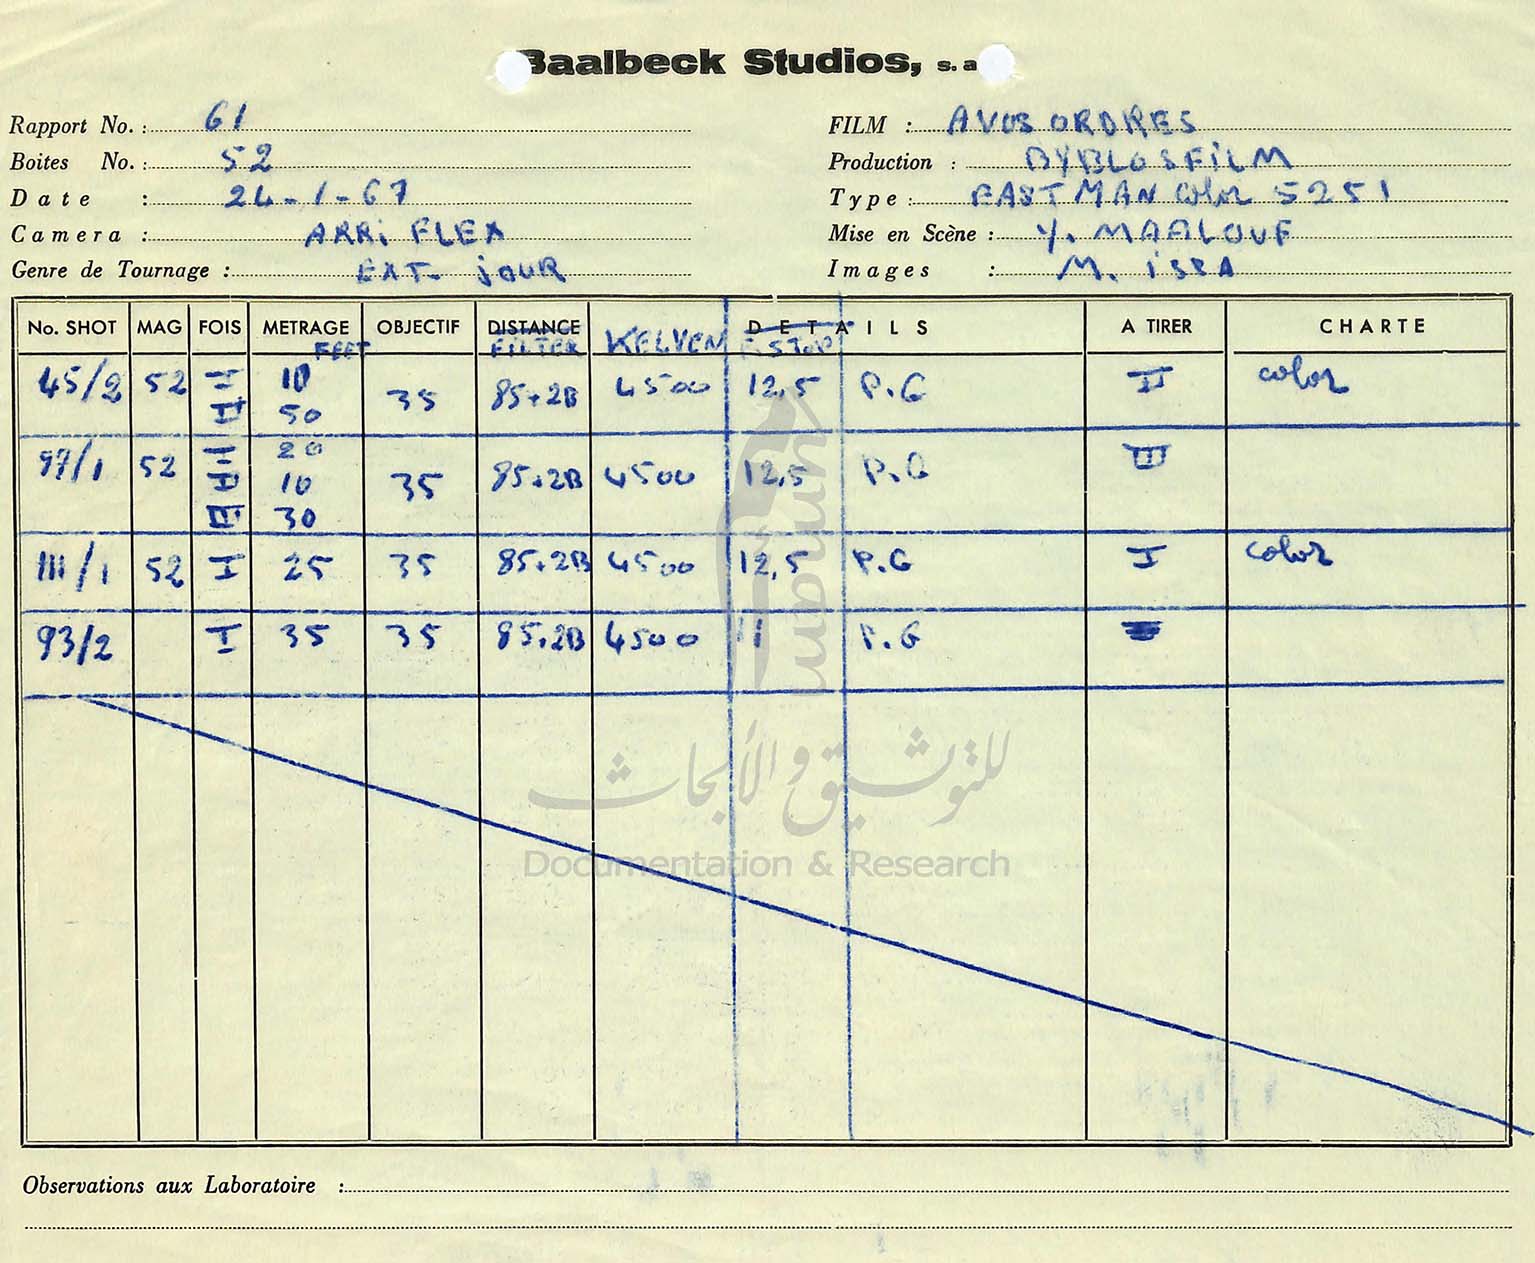 Baalbeck Studios, s. a
Rapport No. : 61
FILM : AVOS ORDRES
Boites No. : 52
Production : BYBLOSFILM
Date : 24-1-67
Type : EASTMAN color 5251
Camera : ARRI FLEX
Mise en Scène : Y. MAALOUF
Genre de Tournage : EXT- JOUR
Images : M. ISSA
No. SHOT MAG FOIS METRAGE OBJECTIF DISTANCE DETAILS A TIRER CHARTE
FEET FILTER KELVEN F. STOP
45/2 52 I 10 35 85+2B 4500 12,5 P.G II color
II 50
97/1 52 I 20 35 85+2B 4500 12,5 P.G III
II 10
III 30
111/1 52 I 25 35 85+2B 4500 12,5 P.G I color
93/2 I 35 35 85+2B 4500 11 P.G
umam
للتوثيق والأبحاث
Documentation & Research
Observations aux Laboratoire :